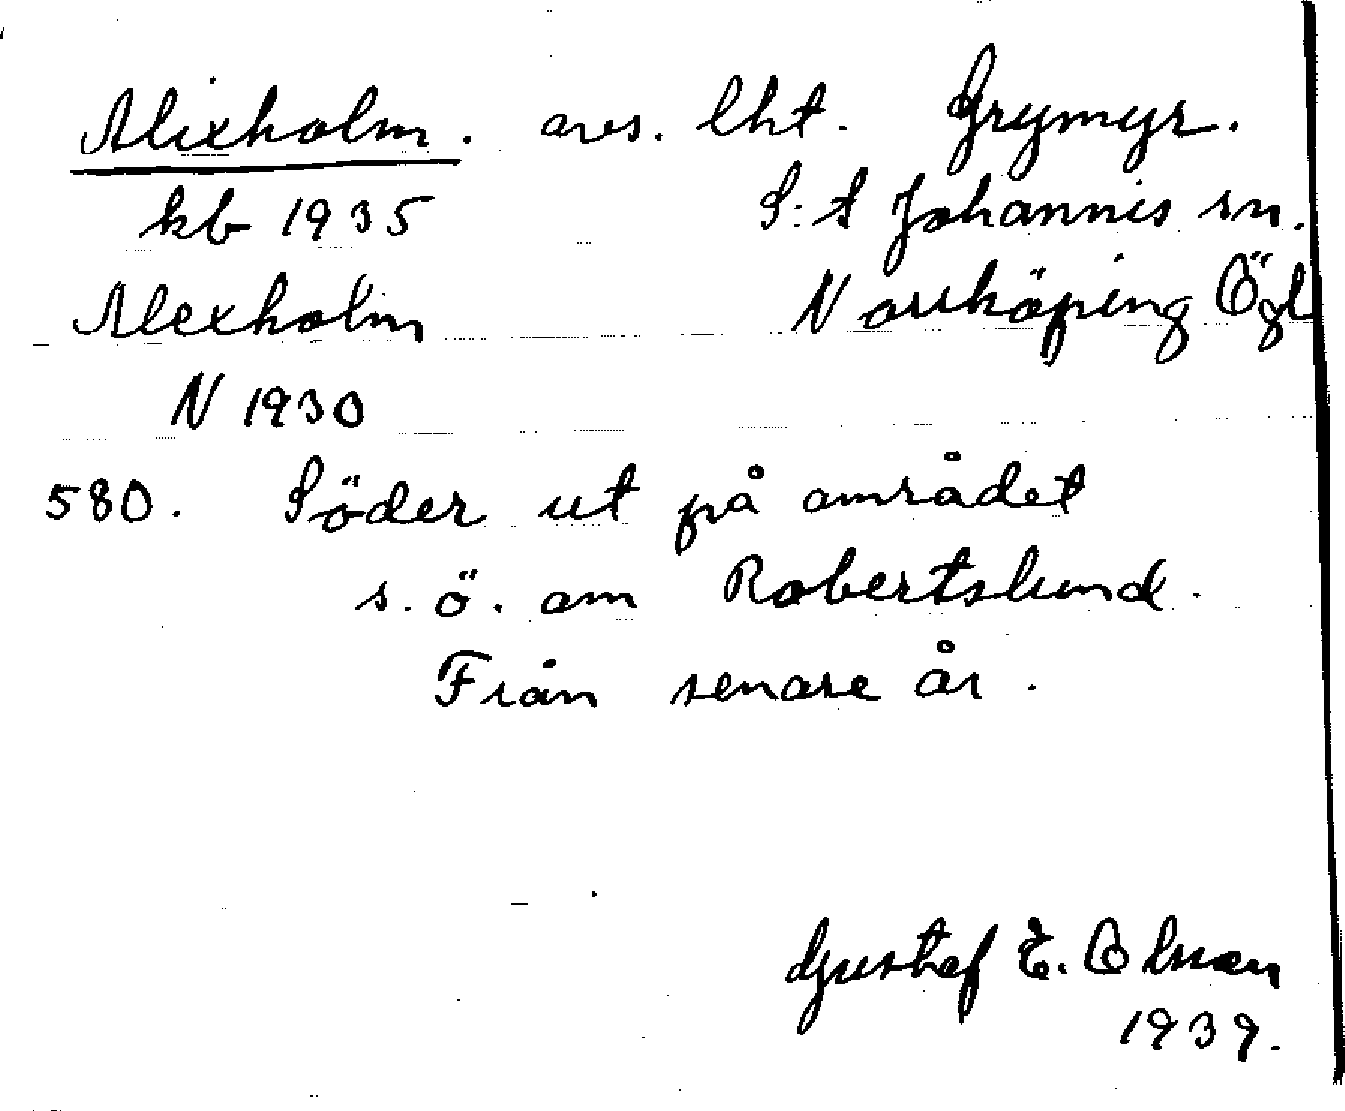 Alixholm. avs. lht. Grymyr.
kb 1935 S:t Johannis sn.
Alexholm Norrköping Ögl
N 1930
580. Söder ut på området
s.ö. om Robertslund.
Från senare år.
Gustaf E. Olsson
1939.